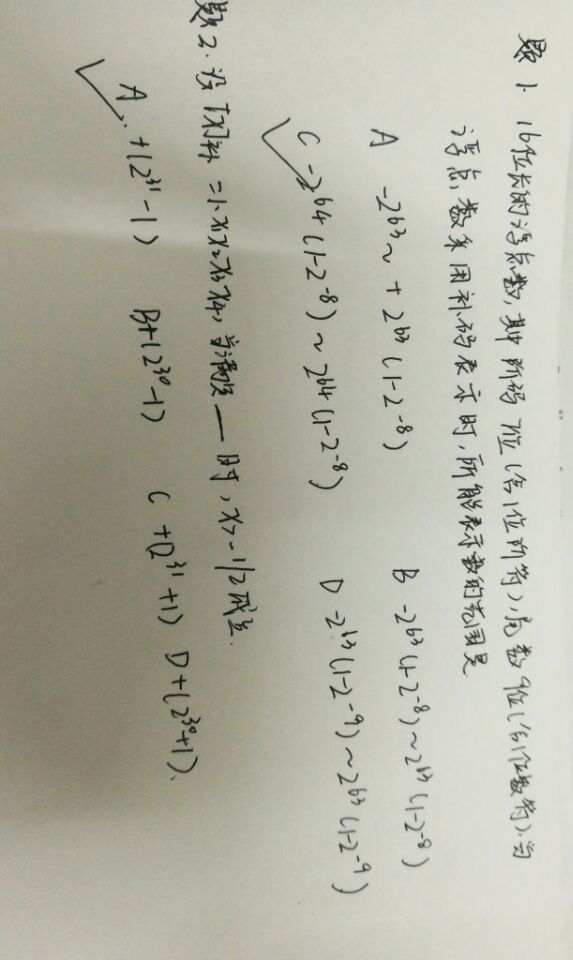 题1. 16位长的浮点数,其中阶码7位(含1位阶符),尾数9位(含1位数符),当
浮点数采用补码表示时,所能表示数的范围是
A -2^63 ~ +2^63(1-2^-8) B -2^63(1-2^-8) ~ 2^63(1-2^-8)
C -2^64(1-2^-8) ~ 2^64(1-2^-8) D -2^63(1-2^-9) ~ 2^63(1-2^-9)
题2. 设[X]补=1.X1X2X3X4,当满足 — 时,X>-1/2成立.
A +(2^31-1) B+(2^30-1) C +(2^31+1) D+(2^30+1).